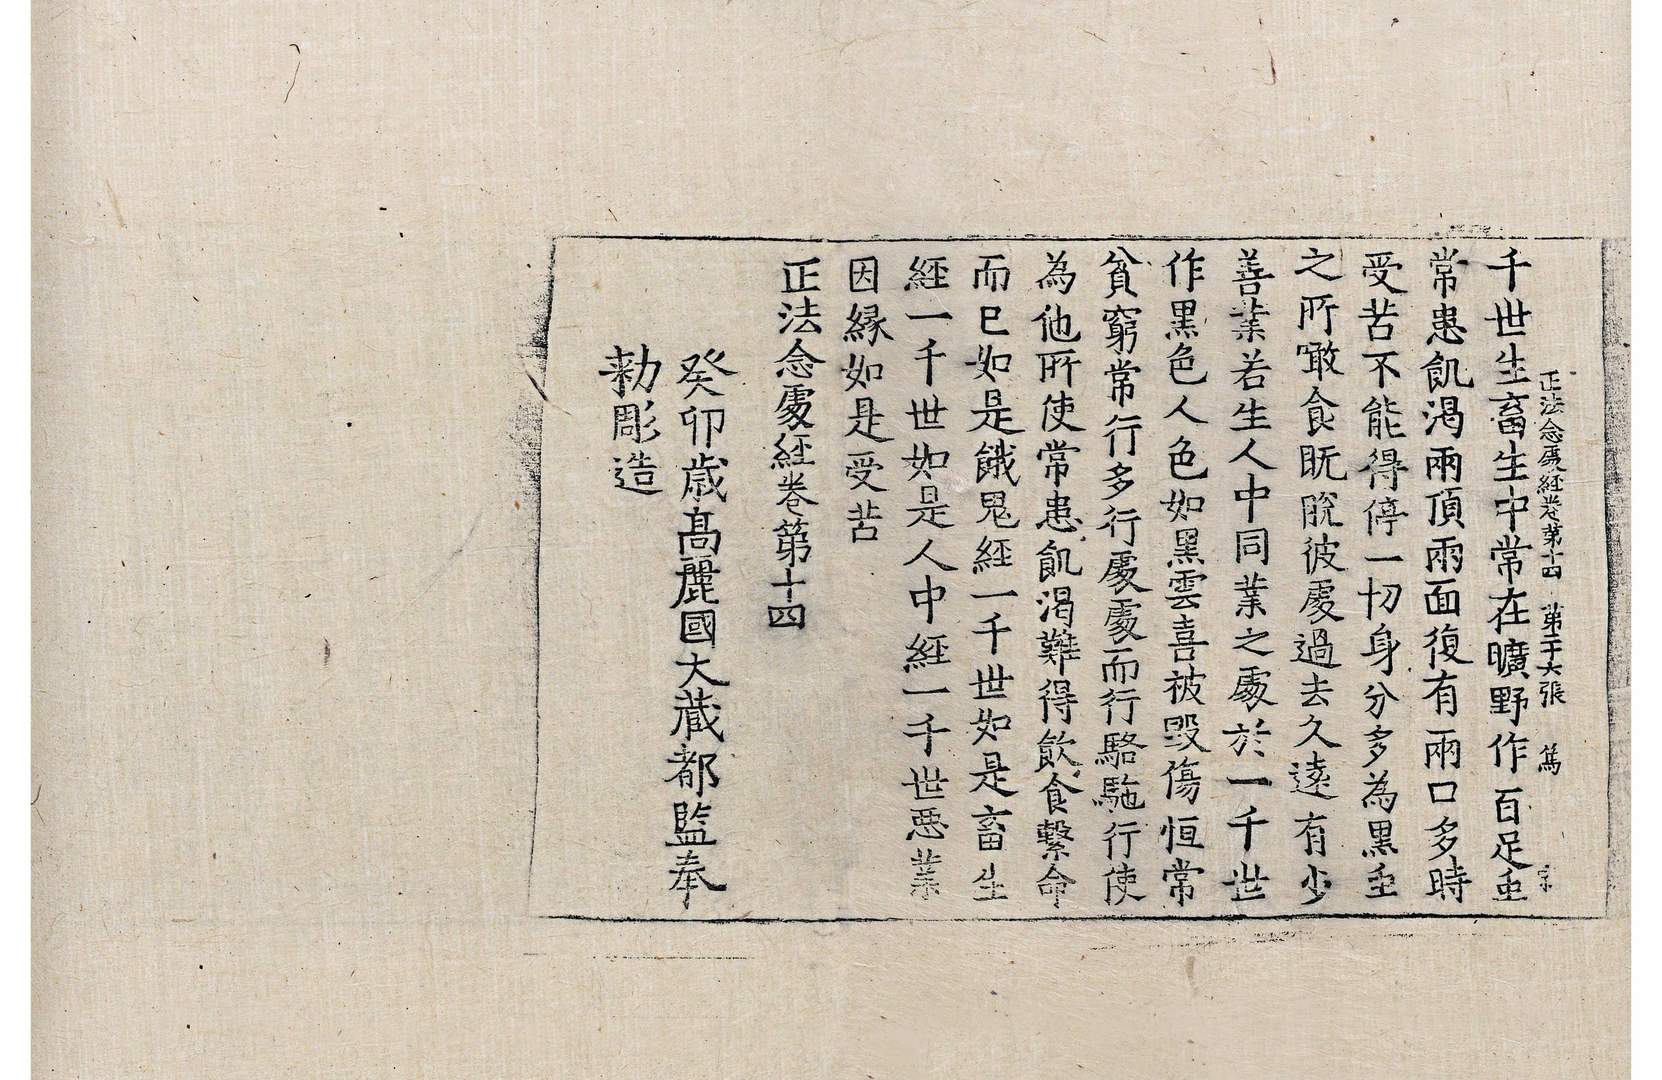 正法念處経卷第十四　第二十六張　篤　宗
千世生畜生中常在曠野作百足虫
常患飢渴兩頂兩面復有兩口多時
受苦不能得停一切身分多為黒虫
之所噉食既脫彼處過去久遠有少
善業若生人中同業之處於一千世
作黒色人色如黒雲喜被毀傷恒常
貧窮常行多行處處而行駱駞行使
為他所使常患飢渴難得飲食繫命
而已如是餓鬼經一千世如是畜生
經一千世如是人中經一千世惡業
因縁如是受苦
正法念處經卷第十四
癸卯歲髙麗國大藏都監奉
勅彫造